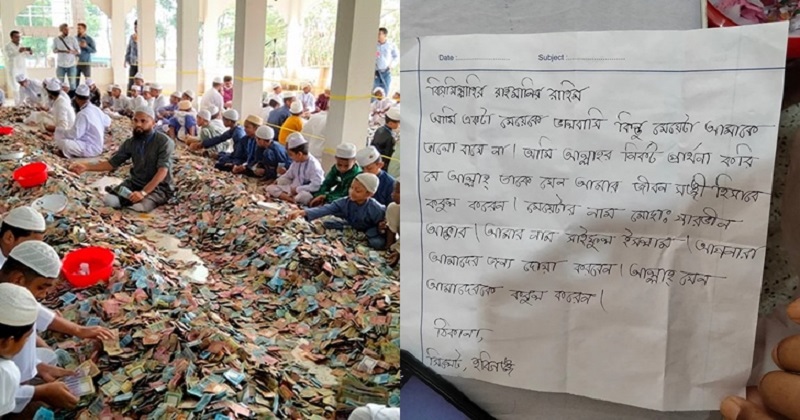 Date : Subject :
বিসমিল্লাহির রাহমানির রাহিম
আমি একটা মেয়েকে ভালবাসি কিন্তু মেয়েটা আমাকে
ভালো বাসে না। আমি আল্লাহর নিকট প্রার্থনা করি
যে আল্লাহ্ তাকে যেন আমার জীবন সাথী হিসাবে
কবুল করেন। মেয়েটার নাম মোছাঃ শারমীন
আক্তার। আমার নাম সাইফুল ইসলাম। আপনারা
আমাদের জন্য দোয়া করবেন। আল্লাহ্ যেন
আমাদেরকে কবুল করেন।
ঠিকানা,
সিলেট, হবিগঞ্জ